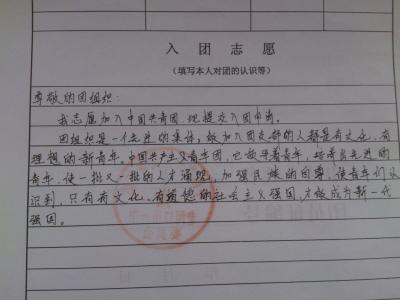 入团志愿
（填写本人对团的认识等）
尊敬的团组织：
我志愿加入中国共青团，现提交入团申请。
团组织是一个先进的集体，能加入团支部的人都是有文化、有
理想的新青年。中国共产主义青年团，它领导着青年，培养出先进的
青年，使一批又一批的人才涌现，加强民族的自尊，使青年们认
识到，只有有文化、有道德的社会主义强国，才能成为新一代
强国。